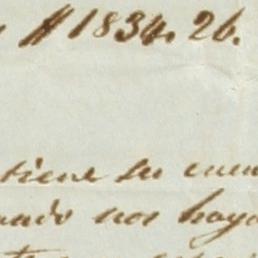 # 1834. 26.
tiene su cuen
uando nos haya